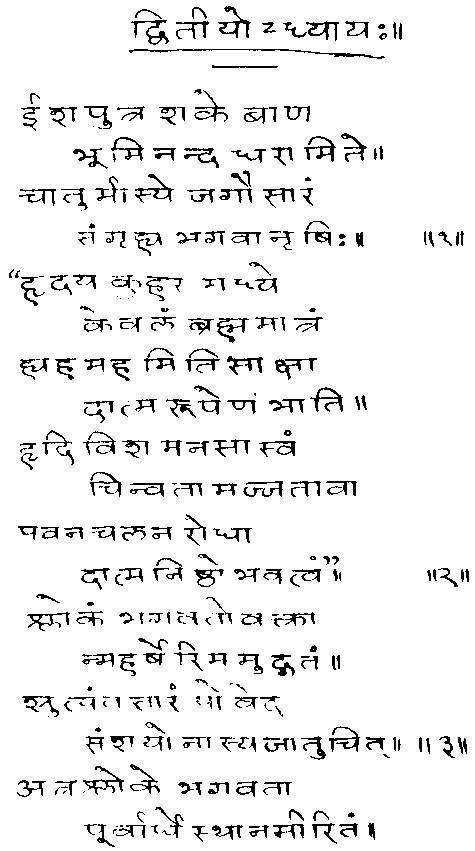 द्वितीयोऽध्यायः॥
ईशपुत्रशके बाण
भूमिनन्दधरामिते॥
चातुर्मास्ये जगौसारं
संगृह्य भगवानृषिः॥ ॥१॥
"हृदय कुहर मध्ये
केवलं ब्रह्ममात्रं
ह्यहमहमितिसाक्षा
दात्मरूपेणंभाति॥
हृदिविशमनसास्वं
चिन्वतामज्जतावा
पवनचलनरोधा
दात्मनिष्ठो भवत्वं"॥ ॥२॥
श्लोकं भगवतोवक्त्रा
न्महर्षेरिममुद्गतं॥
श्रुत्यंतसारं योवेद
संशयोनास्यजातुचित्॥ ॥३॥
अत्रश्लोके भगवता
पूर्वार्धेस्थानमीरितं॥